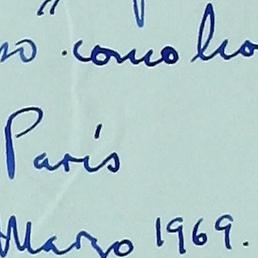 como
París
Marzo 1969.